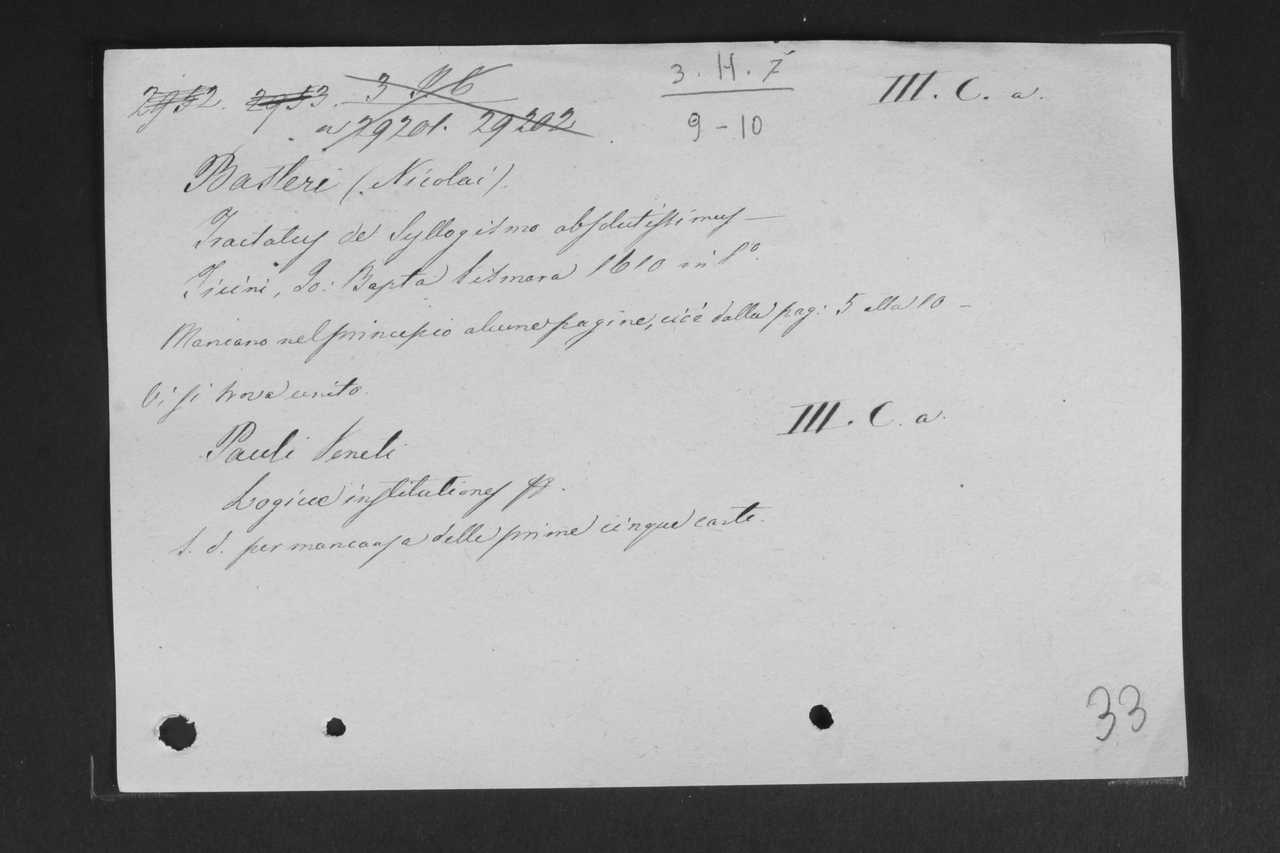 2952. 2953. 3 H. 7 III. C. a.
29201. 29202 9-10
Basteri (Nicolai).
Tractatus de Syllogismo absolutissimus —
Ticini, Jo: Bapta Vismara 1610 in 8°.
Mancano nel principio alcune pagine, cioè dalla pag: 5 alla 10 —
Vi si trova unito.
Pauli Veneti III. C. a.
Logicæ institutiones
s. d. per mancanza delle prime cinque carte.
33